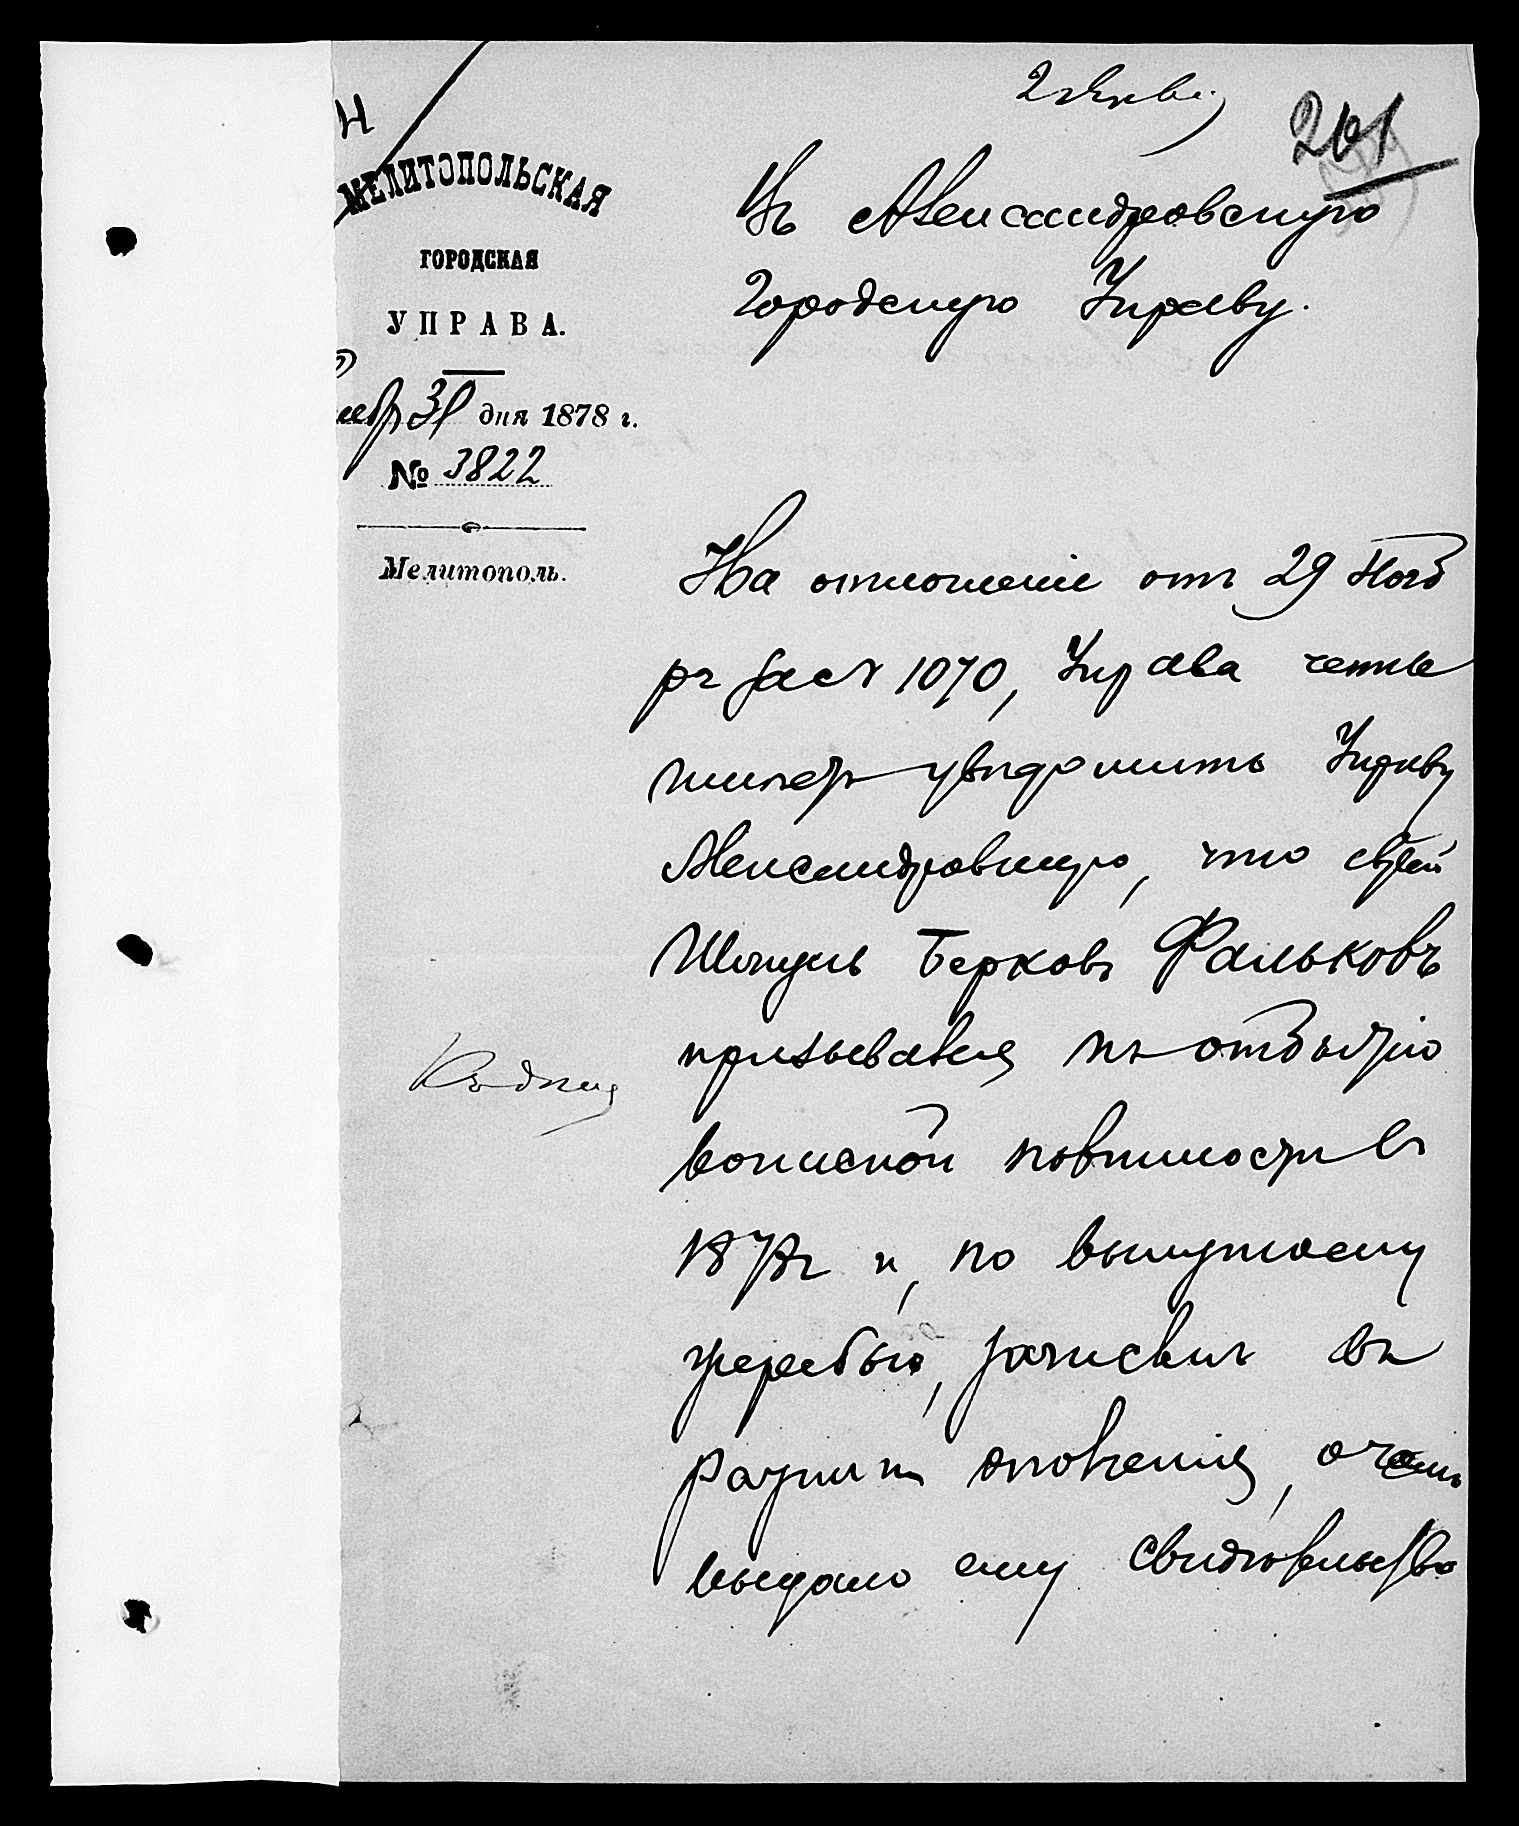 201
МЕЛИТОПОЛЬСКАЯ
ГОРОДСКАЯ
УПРАВА.
31 дня 1878 г.
№ 3822
Мелитополь.
Въ Александровскую
Городскую Управу.
На отношеніе отъ 29 Нояб
ря за № 1070, Управа честь
имѣетъ увѣдомить Управу
Александровскую, что еврей
Шмуль Берковъ Фальковъ
призывался къ отбытію
воинской повинности въ
1878 г и, по вынутому
жеребью, зачисленъ въ
ратники ополченія, о чемъ
выдано ему свидѣтельство